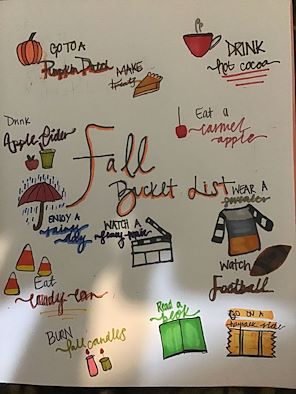 GO TO A
Pumpkin Patch
MAKE
treats
DRINK
hot cocoa
Drink
Apple Cider
Eat a
carmel
apple
Fall
Bucket List
ENJOY A
rainy
day
WATCH A
scary movie
WEAR A
sweater
Eat
candy corn
Watch
Football
BURN
fall candles
Read a
book
GO ON A
hayrack ride